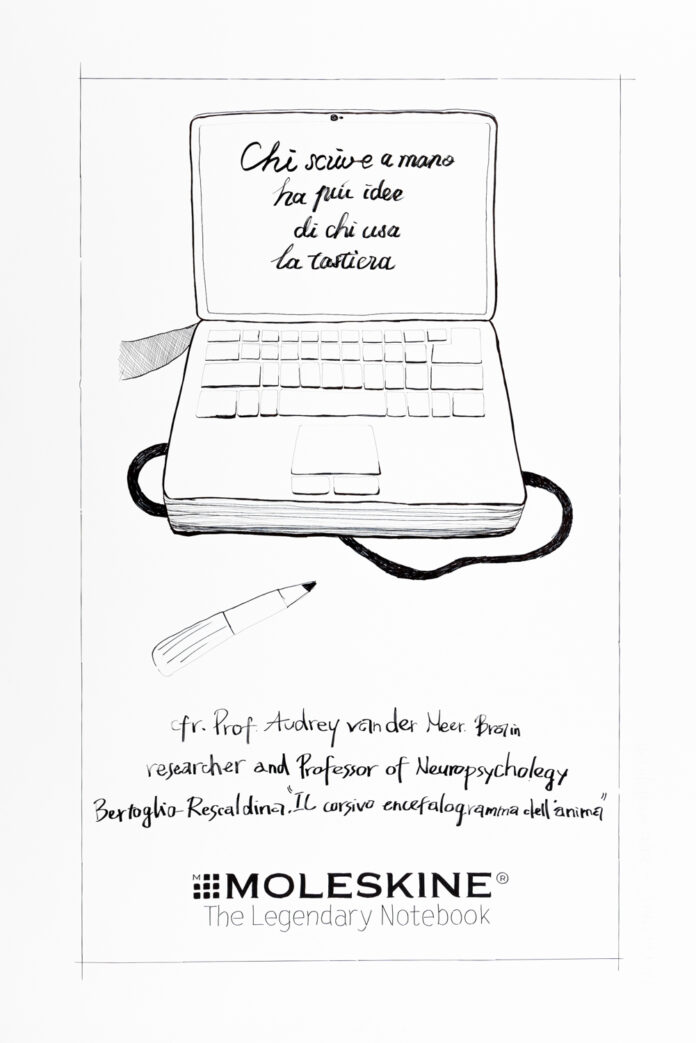 Chi scrive a mano
ha più idee
di chi usa
la tastiera
cfr. Prof. Audrey van der Meer. Brain
researcher and Professor of Neuropsychology
Bertoglio-Rescaldina. "IL corsivo encefalogramma dell'anima"
M MOLESKINE®
The Legendary Notebook